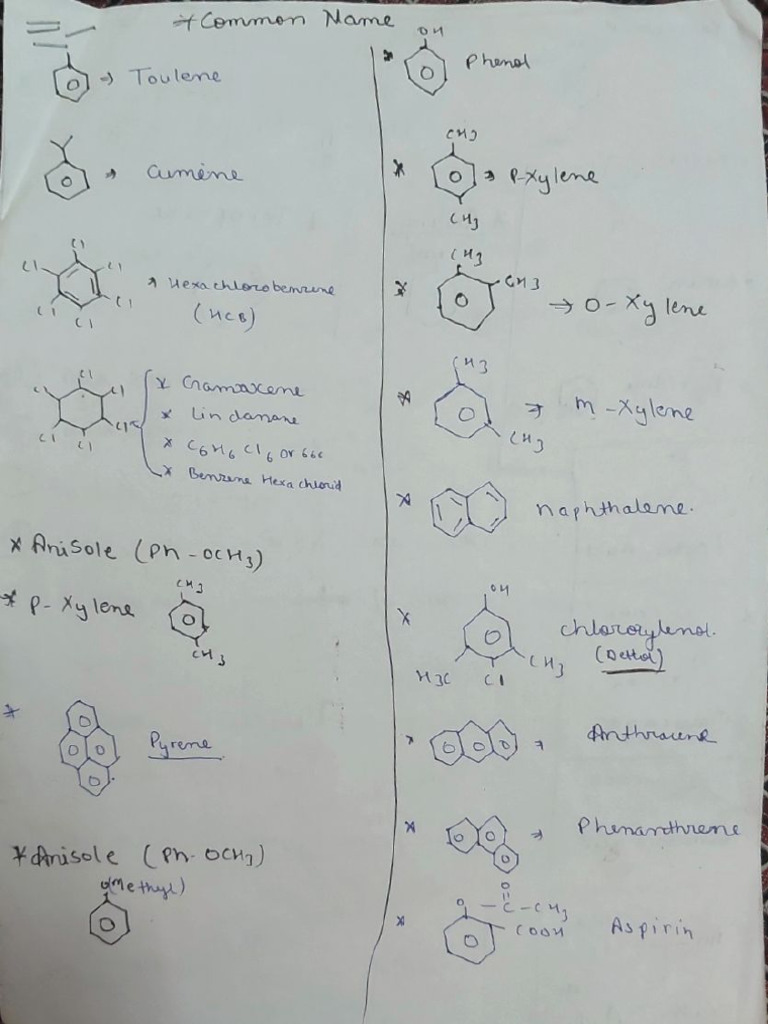 * Common Name
→ Toulene
→ Cumene
Cl
Cl Cl
Cl Cl
Cl
→ Hexachlorobenzene
(HCB)
Cl
Cl Cl
Cl Cl
Cl
* Gramaxene
* Lindanane
* C6H6Cl6 or 666
* Benzene Hexachlorid
* Anisole (Ph-OCH3)
* P-Xylene
CH3
CH3
* Pyrene
* Anisole (Ph-OCH3)
O(Methyl)
* OH
Phenol
CH3
* → P-Xylene
CH3
CH3
* CH3
→ O-Xylene
CH3
* → m-Xylene
CH3
* naphthalene.
OH
* chloroxylenol.
(Dettol)
H3C Cl CH3
* → Anthracene
* → Phenanthrene
O
O-C-CH3
* COOH Aspirin